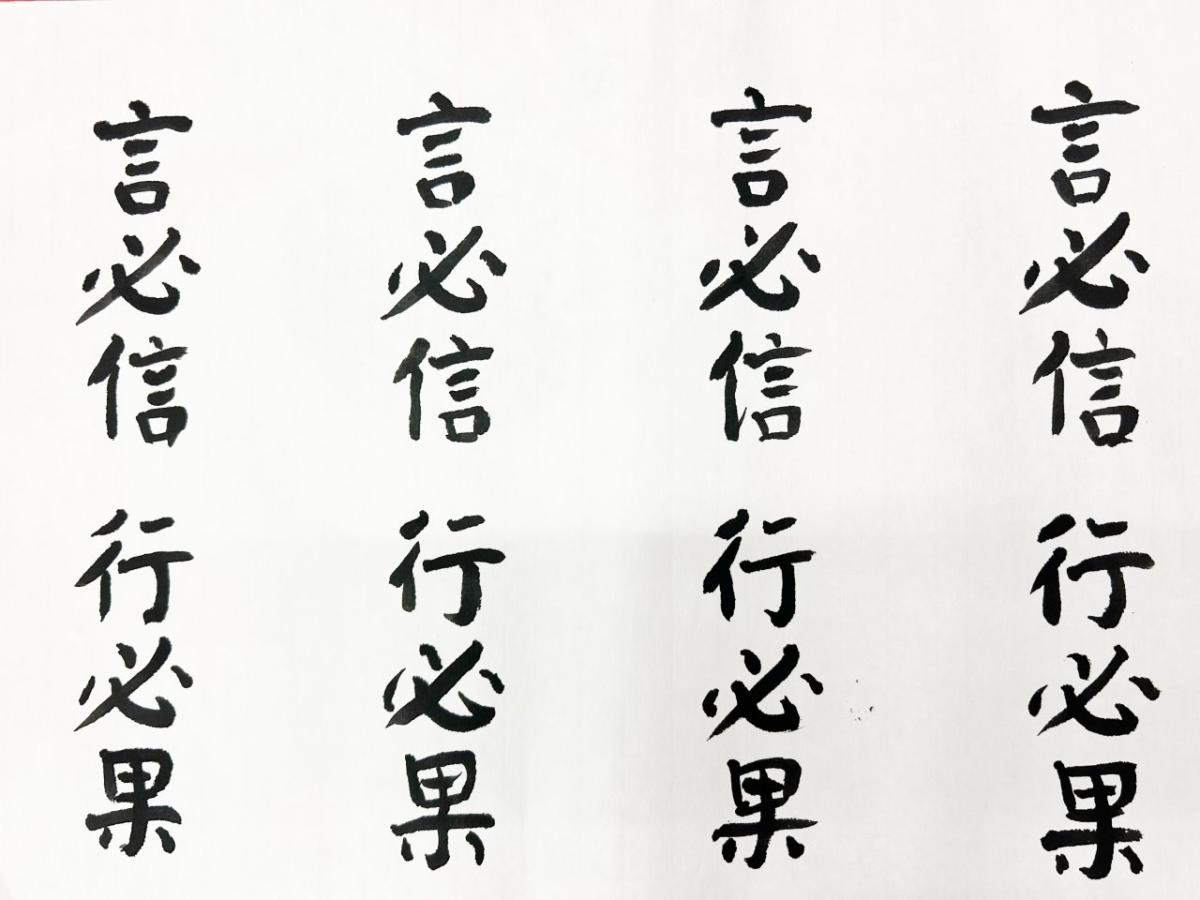 言必信 行必果
言必信 行必果
言必信 行必果
言必信 行必果